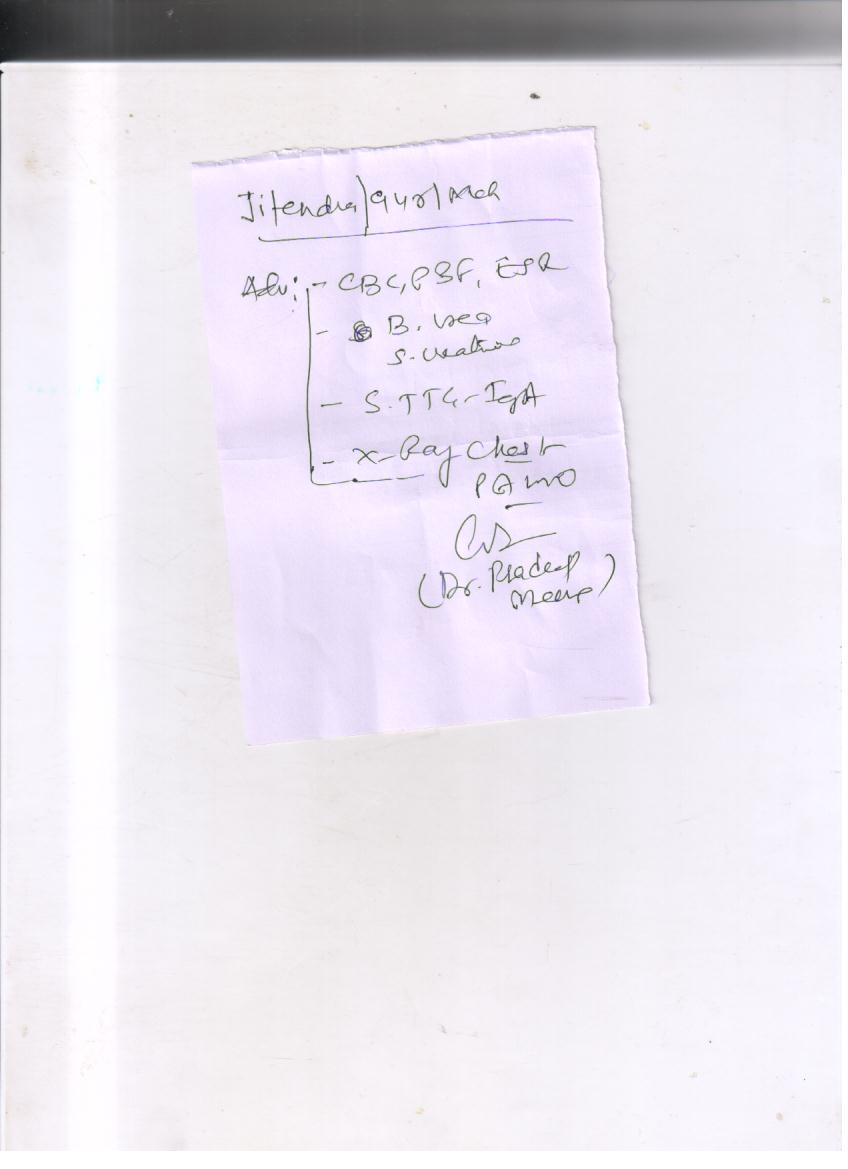 Jitendra/9yr/Mch
Adv:- CBC, PBF, ESR
- B. urea
S. creatinine
- S. TTG-IgA
- X-Ray Chest
PA
(Dr. Pradeep
Meena)